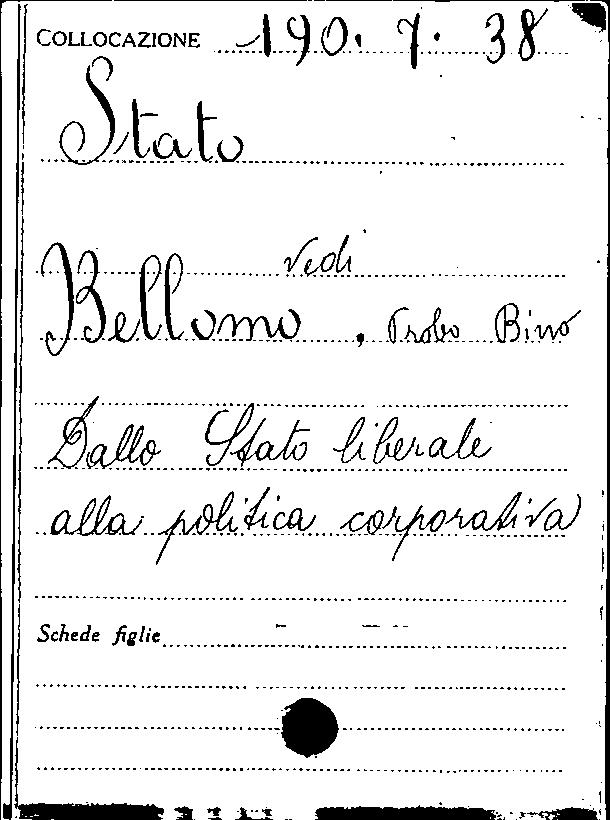 COLLOCAZIONE 190. 7. 38
Stato
vedi
Bellomo, Probo Bino
Dallo Stato liberale
alla politica corporativa
Schede figlie